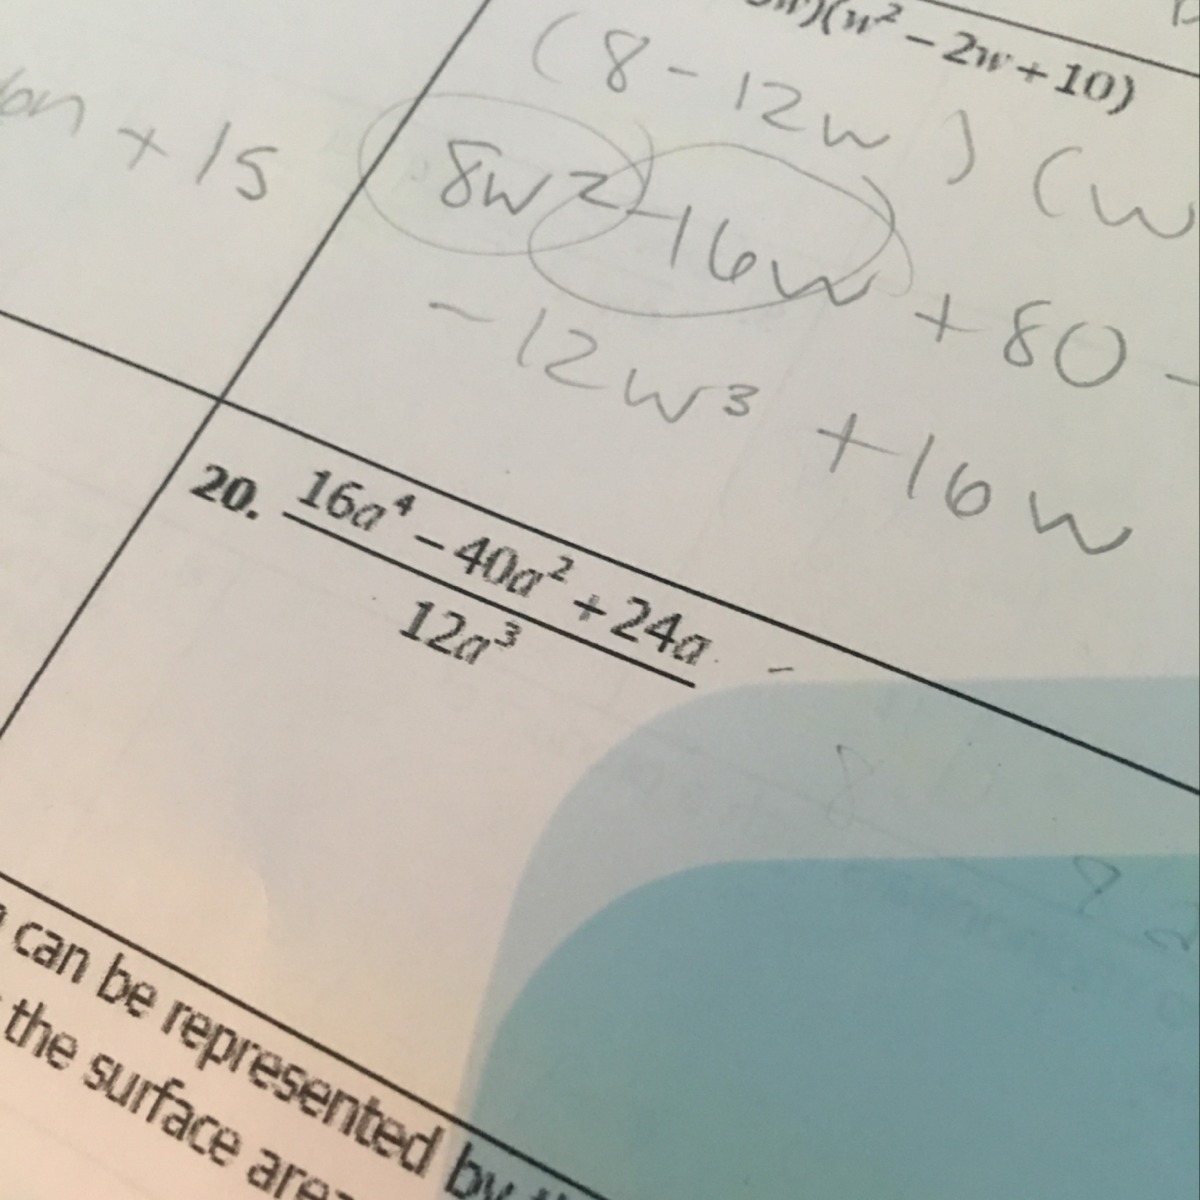 )(w² − 2w + 10)
(8 - 12w) (w
6n + 15
8w² - 16w + 80 -
- 12w³ + 16w
20. 16a⁴ − 40a² + 24a
12a³
can be represented by
the surface area